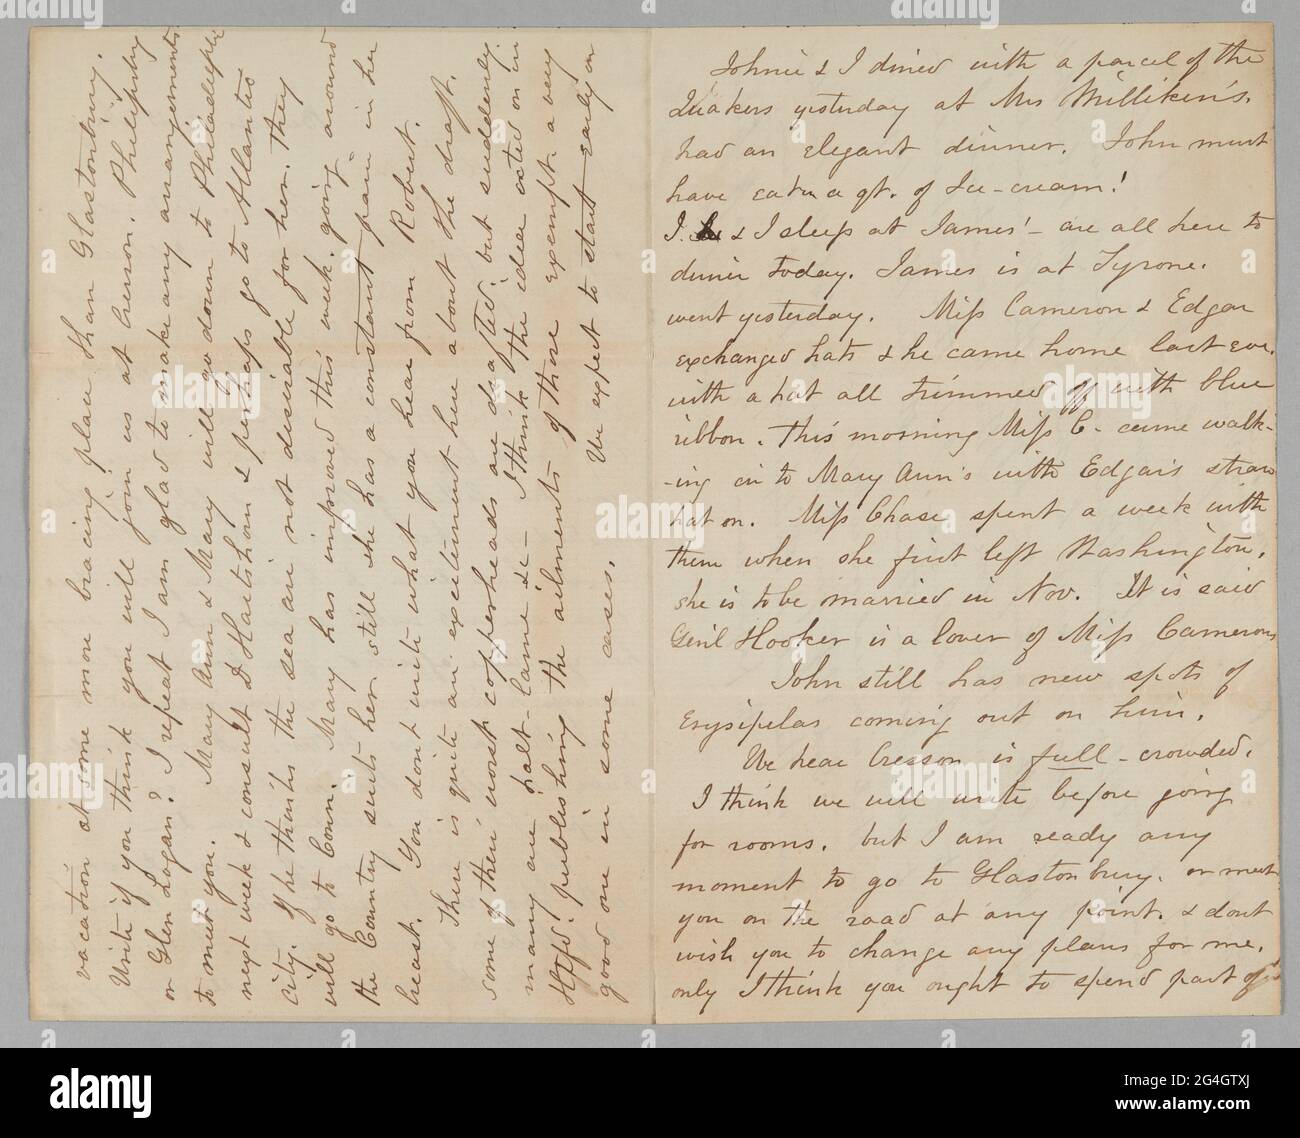 Johnie & I dined with a parcel of the
Quakers yesterday at Mrs Milliken's.
had an elegant dinner. John must
have eaten a qt. of Ice-cream!
J. & I sleep at James' - are all here to
dinner today. James is at Tyrone.
went yesterday. Miss Cameron & Edgar
exchanged hats & he came home last eve.
with a hat all trimmed off with blue
ribbon. This morning Miss C- came walk-
-ing in to Mary Ann's with Edgar's straw
hat on. Miss Chase spent a week with
them when she first left Washington.
she is to be married in Nov. It is said
Gen'l Hooker is a lover of Miss Camerons
John still has new spots of
Erysipelas coming out on him.
We hear Cresson is full - crowded.
I think we will write before going
for rooms. but I am ready any
moment to go to Glastonbury. or meet
you on the road at any point. & dont
wish you to change any plans for me.
only I think you ought to spend part of
vacation at some more bracing place than Glastonbury.
Write if you think you will join us at Cresson. Philipsburg
or Glen Logan? I repeat I am glad to make any arrangements
to meet you. Mary Ann & Mary will go down to Philadelphia
next week & consult Dr Hartshorn & perhaps go to Atlantic
City. If he thinks the sea air not desirable for her. they
will go to Conn. Mary has improved this week. going around
the Country suits her. still she has a constant "pain" in her
breast. You dont write what you hear from Robert.
There is quite an excitement here about the draft.
some of their worst copperheads are drafted. but suddenly
many are halt - lame &c - I think the idea acted on in
Htfd. publishing the ailments of those exempt. a very
good one in some cases. We expect to start early on
alamy
Image ID: 2G4GTXJ
www.alamy.com